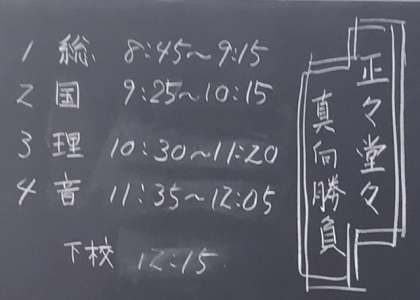 1 総 8:45~9:15
2 国 9:25~10:15
3 理 10:30~11:20
4 音 11:35~12:05
下校 12:15
正々堂々
真向勝負